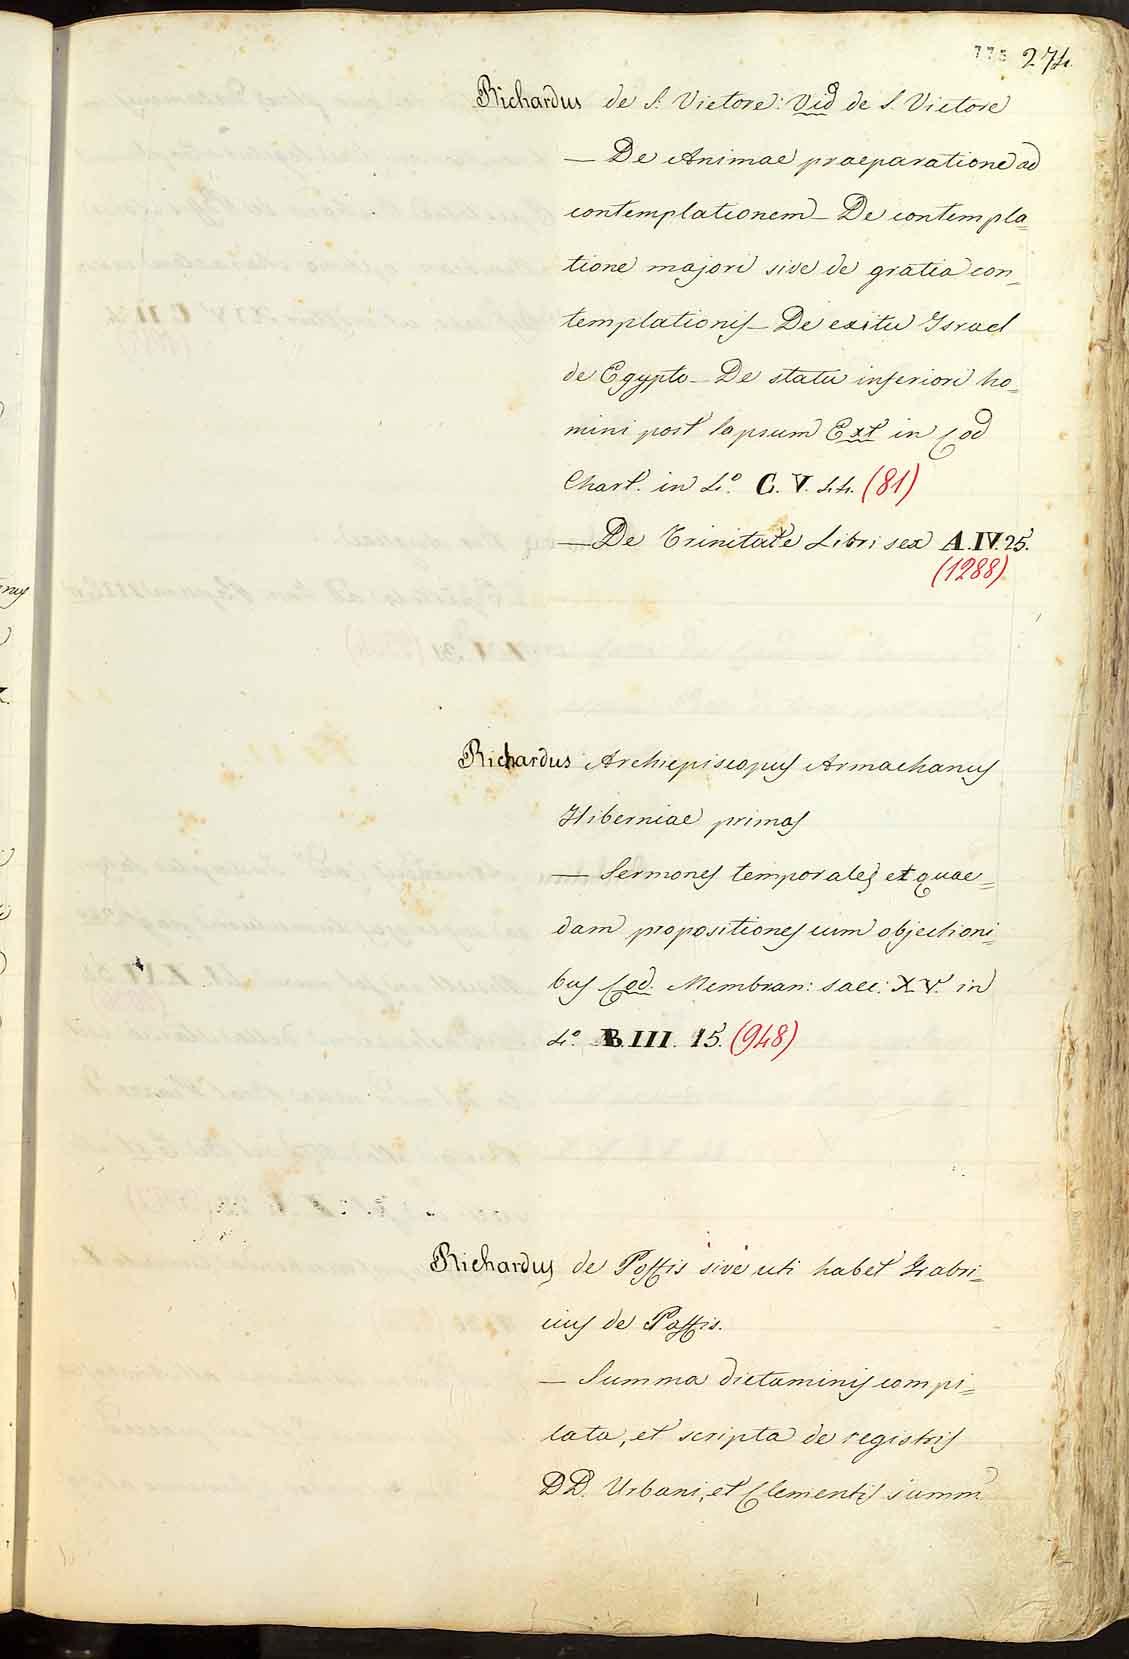 775 274
Richardus de S. Victore: Vid de S. Victore
— De Animae praeparatione ad
contemplationem – De contempla=
tione majori sive de gratia con=
templationis – De exitu Israel
de Egypto – De statu inferiori ho=
mini post lapsum Ext in Cod
Chart. in 4.° C. V. 44. (81)
— De Trinitate Libri sex A. IV. 25.
(1288)
Richardus Archiepiscopus Armachanus
Hiberniae primas
— Sermones temporales et quae=
dam propositiones cum objectioni=
bus Cod. Membran: saec: XV. in
4.° B. III. 15. (948)
Richardus de Poffis sive uti habet Fabri=
cius de Paffis.
— Summa dictaminis compi=
lata, et scripta de registris
DD. Urbani, et Clementis summ